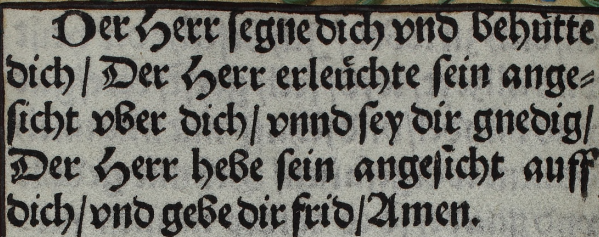 Der Herr ſegne dich vnd behuͤtte
dich / Der Herr erleuͤchte ſein ange⸗
ſicht vber dich / vnnd ſey dir gnedig /
Der Herr hebe ſein angeſicht auff
dich / vnd gebe dir frid / Amen.